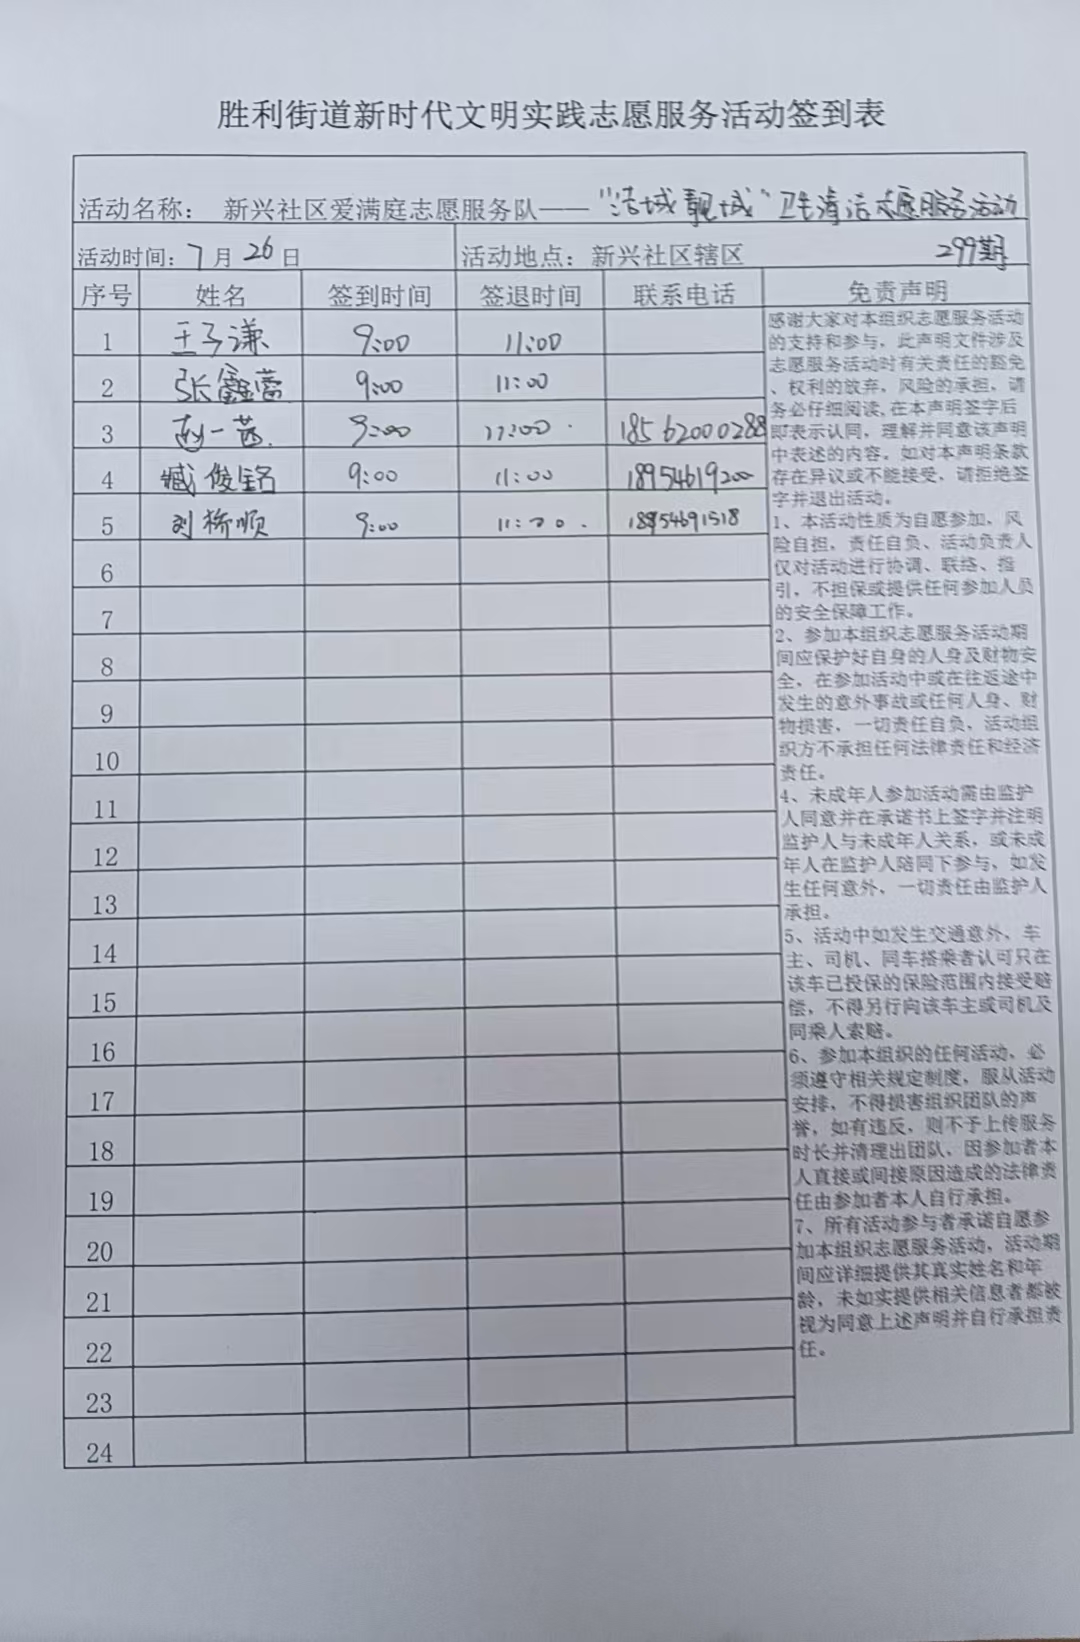 胜利街道新时代文明实践志愿服务活动签到表
活动名称： 新兴社区爱满庭志愿服务队——“洁城靓城”卫生清洁志愿服务活动
活动时间：7月26日 活动地点：新兴社区辖区 299期
序号 姓名 签到时间 签退时间 联系电话 免责声明
1 王子谦 9:00 11:00
2 张鑫蕾 9:00 11:00
3 赵一茜 9:00 11:00 18562000288
4 臧俊铭 9:00 11:00 18954619200
5 刘桥顺 9:00 11:00 18954691518
6
7
8
9
10
11
12
13
14
15
16
17
18
19
20
21
22
23
24
感谢大家对本组织志愿服务活动
的支持和参与，此声明文件涉及
志愿服务活动时有关责任的豁免
、权利的放弃，风险的承担，请
务必仔细阅读,在本声明签字后
即表示认同，理解并同意该声明
中表述的内容。如对本声明条款
存在异议或不能接受，请拒绝签
字并退出活动。
1、本活动性质为自愿参加，风
险自担，责任自负、活动负责人
仅对活动进行协调、联络、指
引，不担保或提供任何参加人员
的安全保障工作。
2、参加本组织志愿服务活动期
间应保护好自身的人身及财物安
全，在参加活动中或在往返途中
发生的意外事故或任何人身、财
物损害，一切责任自负，活动组
织方不承担任何法律责任和经济
责任。
4、未成年人参加活动需由监护
人同意并在承诺书上签字并注明
监护人与未成年人关系，或未成
年人在监护人陪同下参与，如发
生任何意外，一切责任由监护人
承担。
5、活动中如发生交通意外，车
主、司机、同车搭乘者认可只在
该车已投保的保险范围内接受赔
偿，不得另行向该车主或司机及
同乘人索赔。
6、参加本组织的任何活动，必
须遵守相关规定制度，服从活动
安排，不得损害组织团队的声
誉，如有违反，则不予上传服务
时长并清理出团队，因参加者本
人直接或间接原因造成的法律责
任由参加者本人自行承担。
7、所有活动参与者承诺自愿参
加本组织志愿服务活动，活动期
间应详细提供其真实姓名和年
龄，未如实提供相关信息者都被
视为同意上述声明并自行承担责
任。